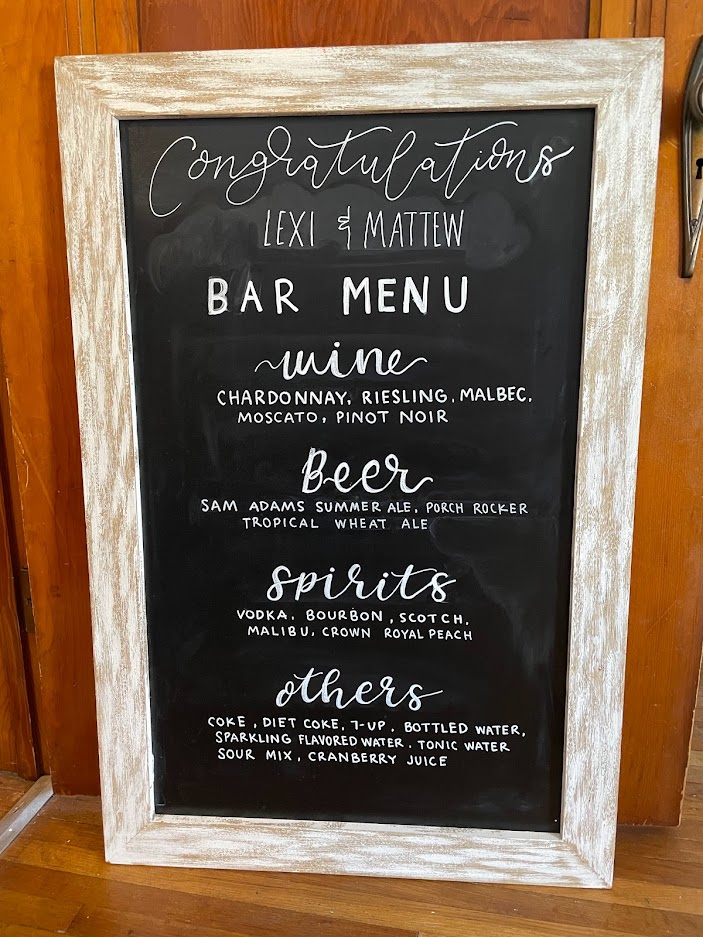 Congratulations
LEXI & MATTEW
BAR MENU
wine
CHARDONNAY, RIESLING, MALBEC,
MOSCATO, PINOT NOIR
Beer
SAM ADAMS SUMMER ALE, PORCH ROCKER
TROPICAL WHEAT ALE
spirits
VODKA, BOURBON, SCOTCH,
MALIBU, CROWN ROYAL PEACH
others
COKE, DIET COKE, 7-UP, BOTTLED WATER,
SPARKLING FLAVORED WATER, TONIC WATER
SOUR MIX, CRANBERRY JUICE